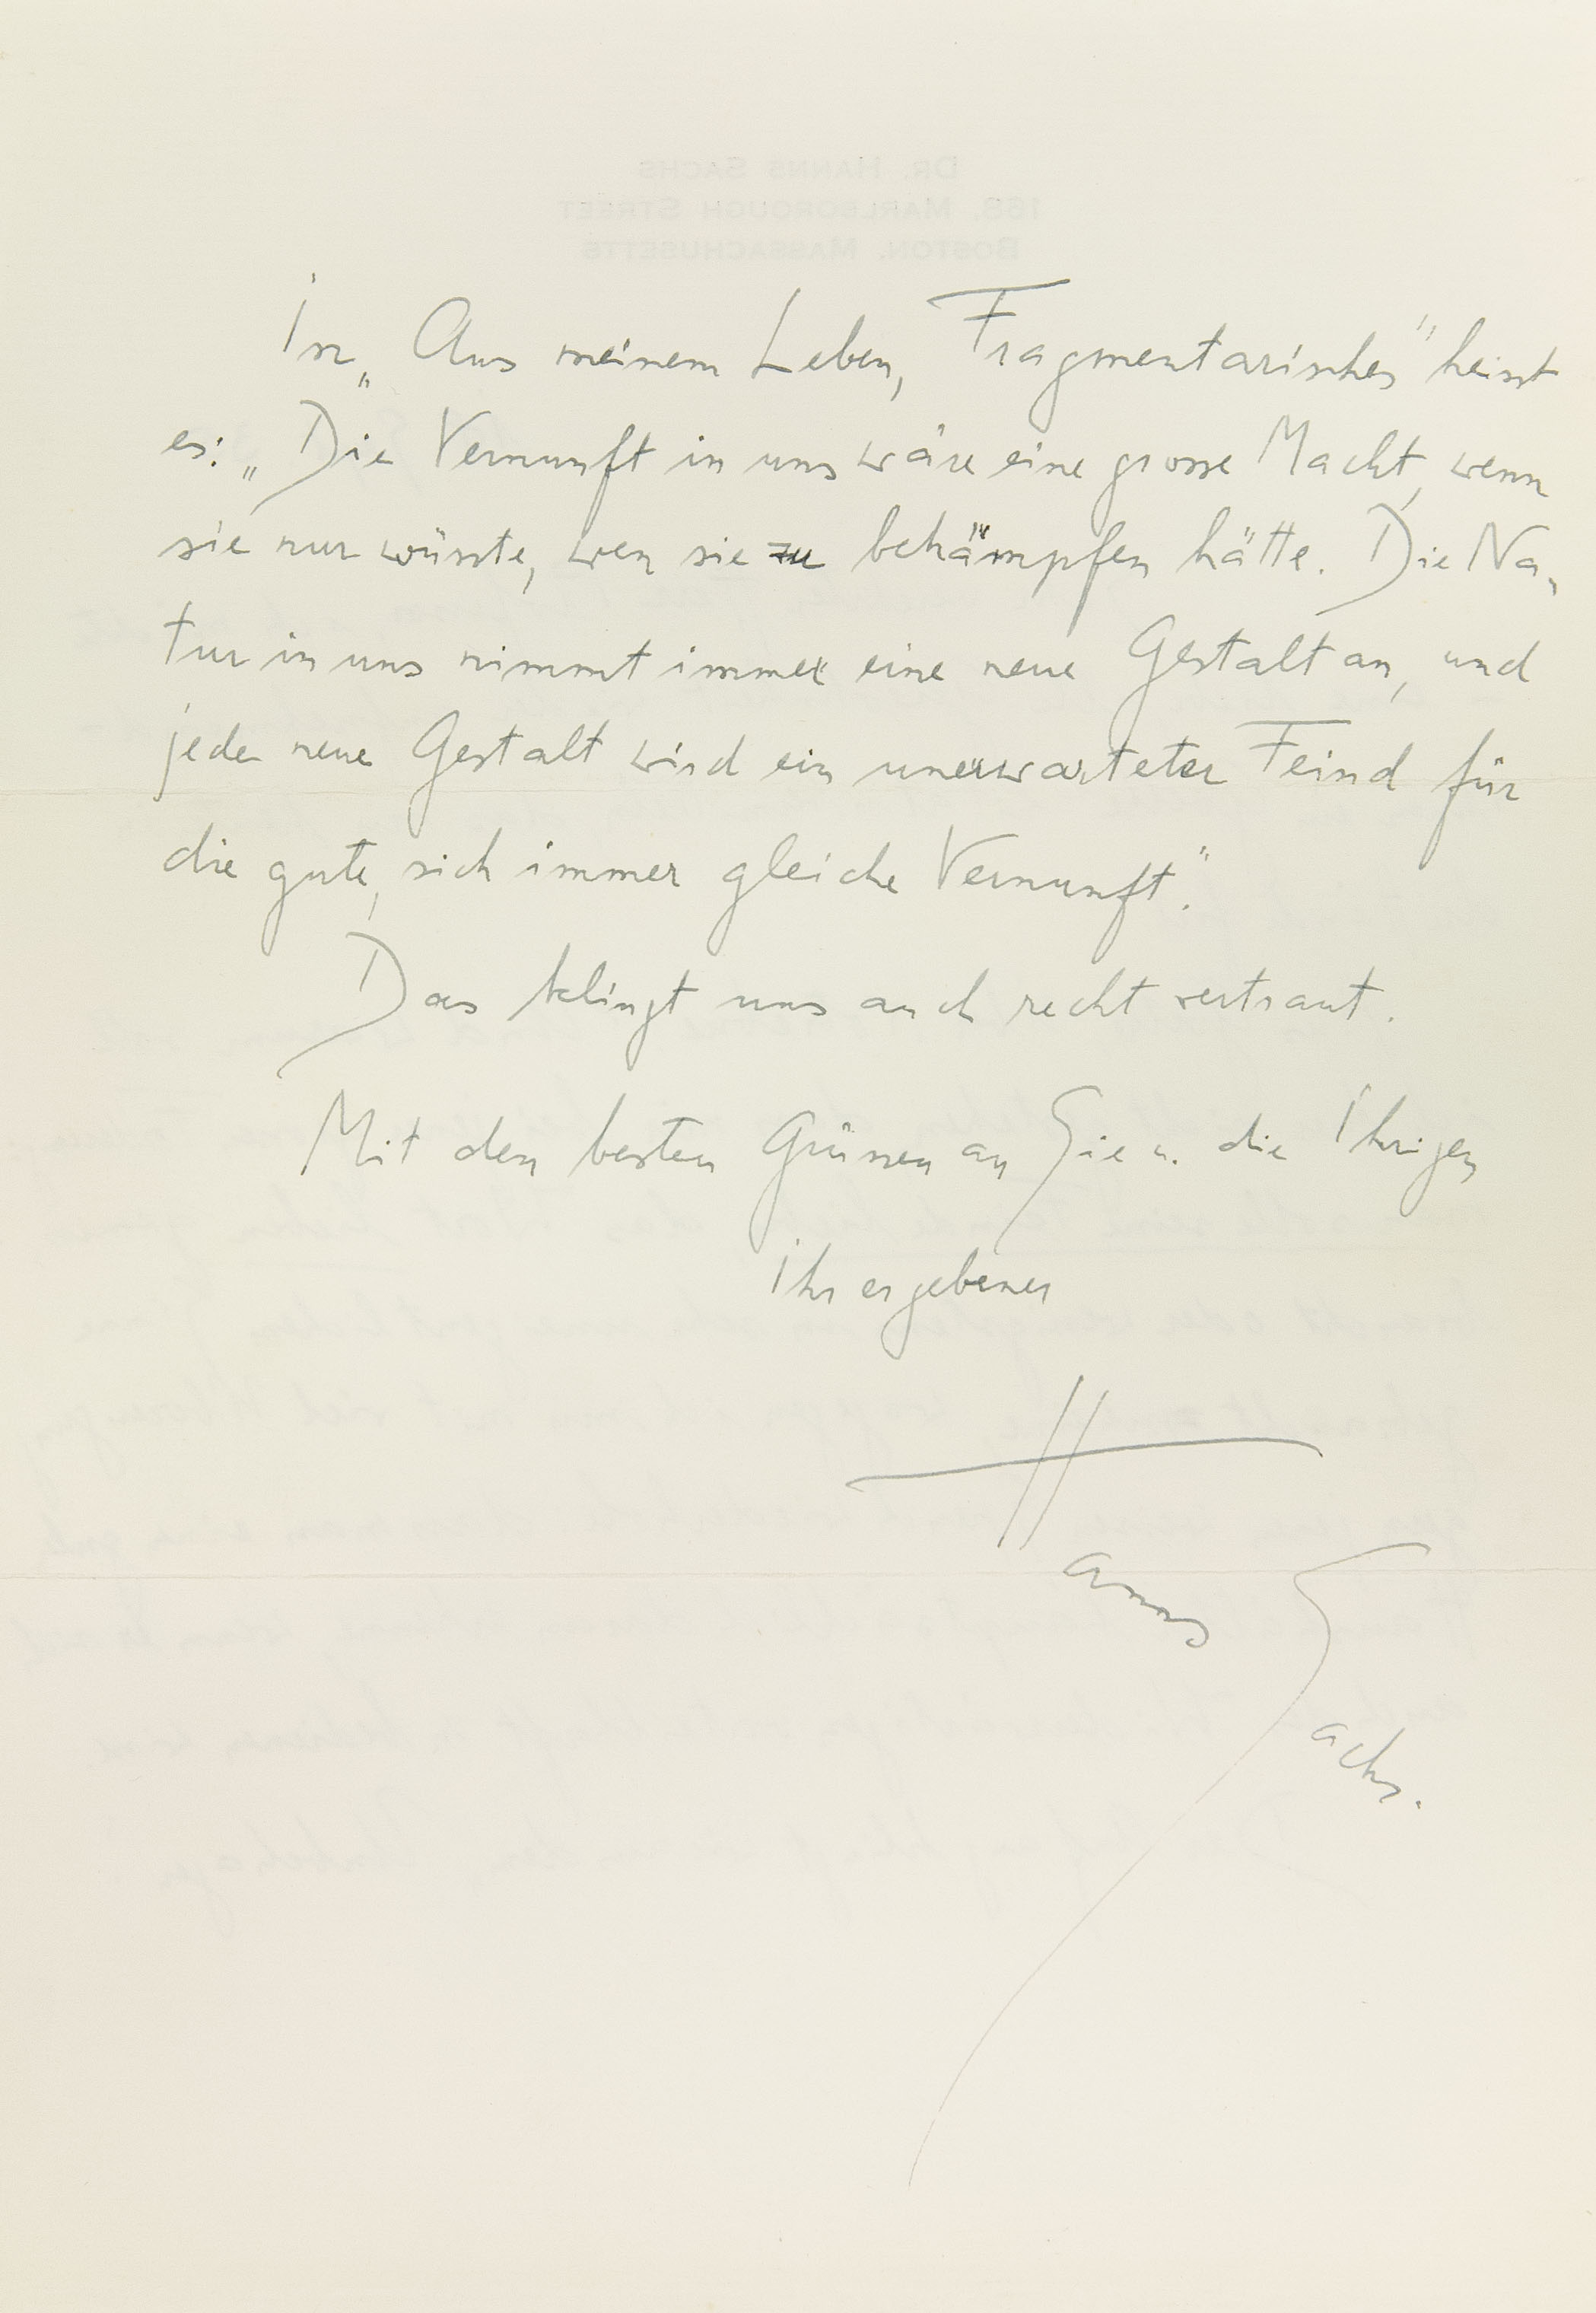 Dr. Hanns Sachs
168, Marlborough Street
Boston, Massachusetts
In „Aus meinem Leben, Fragmentarisches" heisst
es: „Die Vernunft in uns wäre eine grosse Macht, wenn
sie nur wüsste, wen sie zu bekämpfen hätte. Die Na-
tur in uns nimmt immer eine neue Gestalt an, und
jede neue Gestalt wird ein unerwarteter Feind für
die gute, sich immer gleiche Vernunft".
Das klingt uns auch recht vertraut.
Mit den besten Grüssen an Sie u. die Ihrigen
Ihr ergebener
Hanns
Sachs.